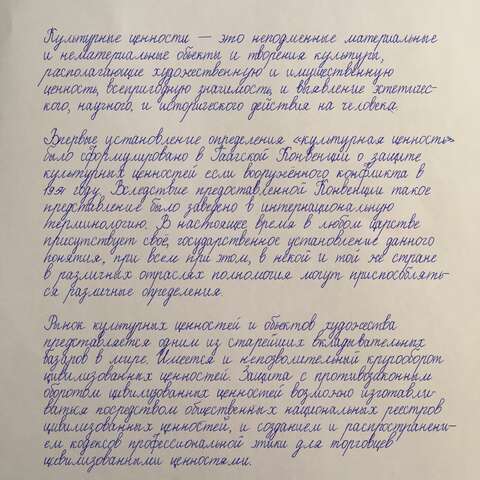 Культурные ценности — это неподменные материальные
и нематериальные объекты и творения культуры,
располагающие художественную и имущественную
ценность, всепригодную значимость, и выявление эстетичес-
кого, научного, и исторического действия на человека.
Впервые установление определения «культурная ценность»
было сформулировано в Гаагской Конвенции о защите
культурных ценностей если вооруженного конфликта в
1954 году. Вследствие предоставленной Конвенции такое
представление было заверено в интернациональную
терминологию. В настоящее время в любом царстве
присутствует своё, государственное установление данного
понятия, при всем при этом, в некой и той же стране
в различных отраслях полномочия могут приспособлять-
ся различные определения.
Рынок культурных ценностей и объектов художества
представляется одним из старейших вкладывательных
базаров в мире. Имеется и непозволительный кругооборот
цивилизованных ценностей. Защита с противозаконным
оборотом цивилизованных ценностей возможно изготавли-
ваться посредством общественных национальных реестров
цивилизованных ценностей, и созданием и распространени-
ем кодексов профессиональной этики для торговцев
цивилизованными ценностями.